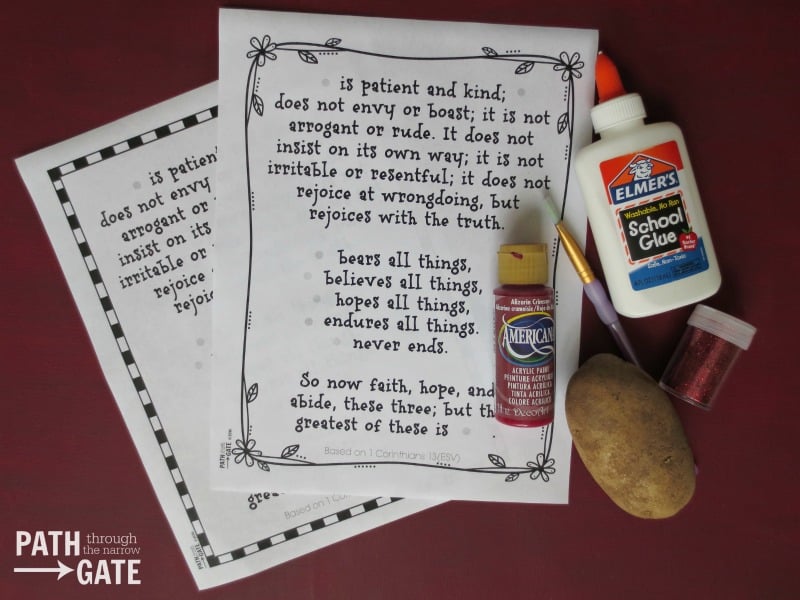 is patient and kind;
does not envy or boast; it is not
arrogant or rude. It does not
insist on its own way; it is not
irritable or resentful; it does not
rejoice at wrongdoing, but
rejoices with the truth.
bears all things,
believes all things,
hopes all things,
endures all things.
never ends.
So now faith, hope, and
abide, these three; but th
greatest of these is
Based on 1 Corinthians 13(ESV)
PATH
GATE
is patien
does not envy
arrogant or
insist on its
irritable or
rejoice
rejoic
grea
Based on 1 Co
Alizarin Crimson
AMERICANA
ACRYLIC PAINT
PEINTURE ACRYLIQUE
PINTURA ACRÍLICA
TINTA ACRÍLICA
COLORE ACRILICO
DecoArt
ELMER'S
Washable, No Run
School
Glue
Safe, Non-Toxic
PATH through
the narrow
GATE